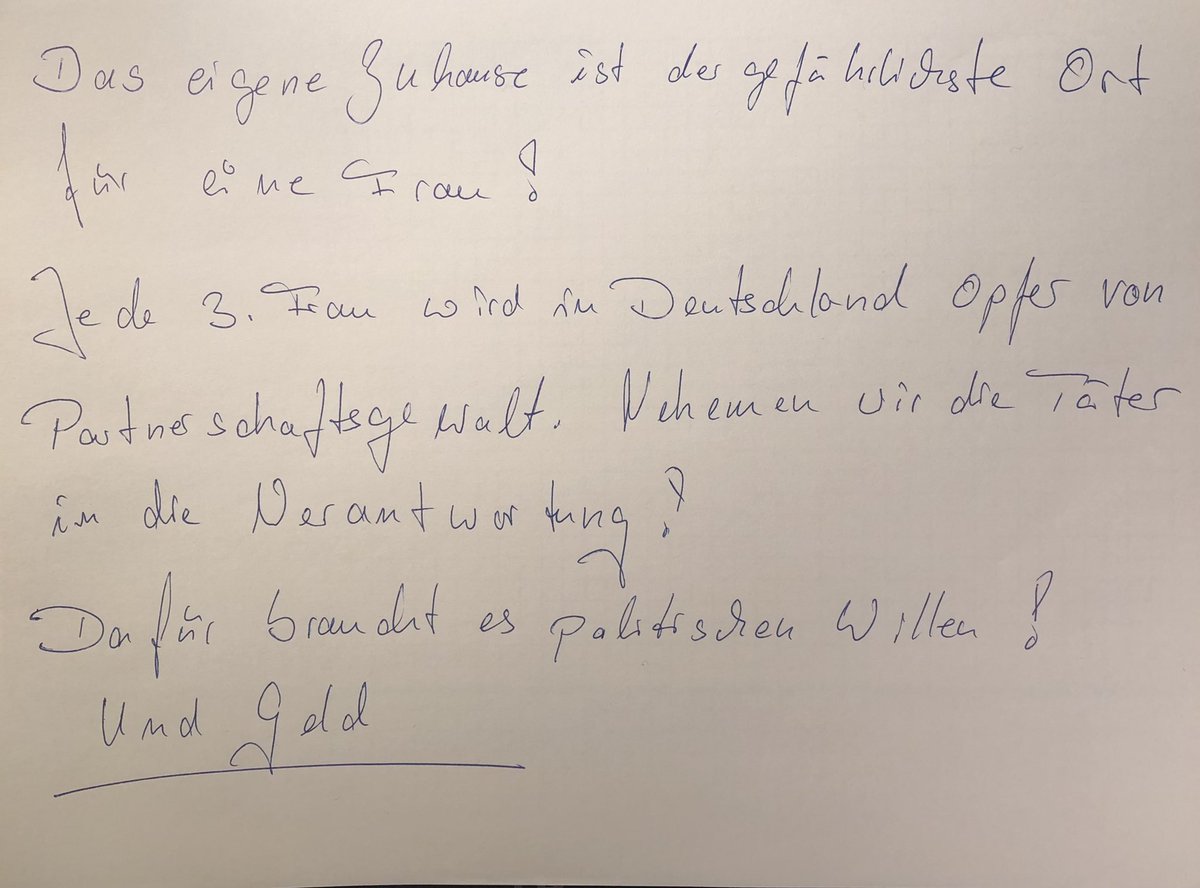 Das eigene Zuhause ist der gefährlichste Ort
für eine Frau!
Jede 3. Frau wird in Deutschland Opfer von
Partnerschaftsgewalt. Nehemen wir die Täter
in die Verantwortung!
Dafür braucht es politischen Willen!
Und Geld